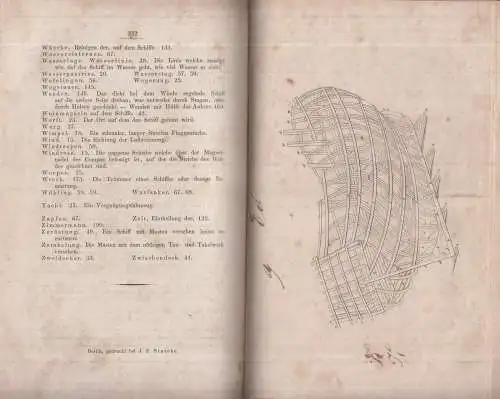 232
Wäsche. Reinigen der, auf dem Schiffe. 144.
Wasserstationen. 67.
Wasserlage. Wasserlinie. 29. Die Linie welche anzeigt
wie tief das Schiff im Wasser geht, wie viel Wasser es zieht
Wasserpass 20. Wasserstag. 57. 59.
Webelingen. 56. Wegerung. 25.
Wegweiser. 145.
Wenden. 149. Das dicht bei dem Winde segelnde Schiff
auf die andere Seite drehen, was entweder durch Stagen, oder
durch Halsen geschieht. — Wenden mit Hülfe des Ankers. 151
auf dem Schiffe. 42.
Werft. 21. Der Ort auf dem das Schiff gebaut wird.
Werg. 27.
Wimpel. 75. Ein schmaler, langer Streifen Flaggentuche.
Wind. 15. Die Richtung der Luftströmung.
Windreepen. 59.
Windrose. 15. Die pappene Scheibe welche über der Magnet-
nadel des Compas befestigt ist, auf der die Striche des Win-
des gezeichnet sind.
Worpen. 25.
Wrack. 177. Die Trümmer eines Schiffes oder dessen Be-
mastung.
Wühling. 28. 59. Wurfanker. 67. 69.
Yacht. 21. Ein Vergnügungsfahrzeug.
Zapfen. 67. Zeit, Eintheilung der, 139.
Zimmermann. 199.
Zurüstung. 49. Ein Schiff mit Masten versehen heisst es
zurüsten.
Zutakelung. Die Masten mit dem nöthigen Tau- und Takelwerk
versehen.
Zweidecker. 33. Zwischendeck. 41.
Berlin, gedruckt bei J. F. Starcke.